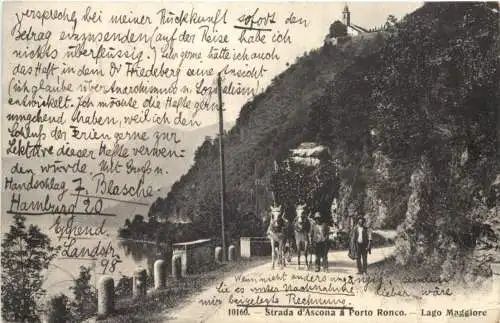 verspreche bei meiner Rückkunft sofort den
Betrag einzusenden (auf der Reise habe ich
nichts überflüssig.) Sehr gerne hätte ich auch
das Heft in dem Dr Friedeberg seine Ansicht
(ich glaube über Anarchismus u. Sozialismus)
entwickelt. Ich möchte die Hefte gerne
umgehend haben, weil ich den
Schluß der Ferien gerne zur
Lektüre dieser Hefte verwen-
den würde. Mit Gruß u.
Handschlag F. Blasche
Hamburg 20
Eppend.
Landstr.
98
Wenn nicht anders
Sie es unter Nachnahme
lieber wäre
mir beigelegte Rechnung.
10160. — Strada d'Ascona à Porto Ronco. — Lago Maggiore